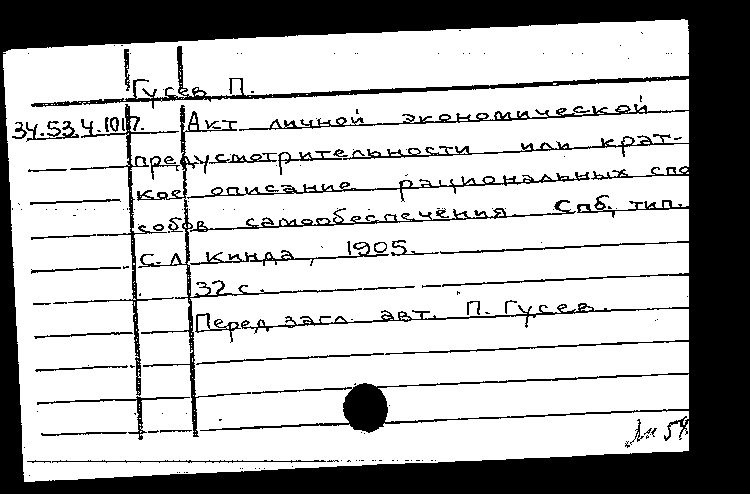 Гусев, П.
34.53.4.1017. Акт личной экономической
предусмотрительности или крат-
кое описание рациональных спо
собов самообеспечения. Спб, тип.
С. Л. Кинда, 1905.
32 с.
Перед загл. авт. П. Гусев.